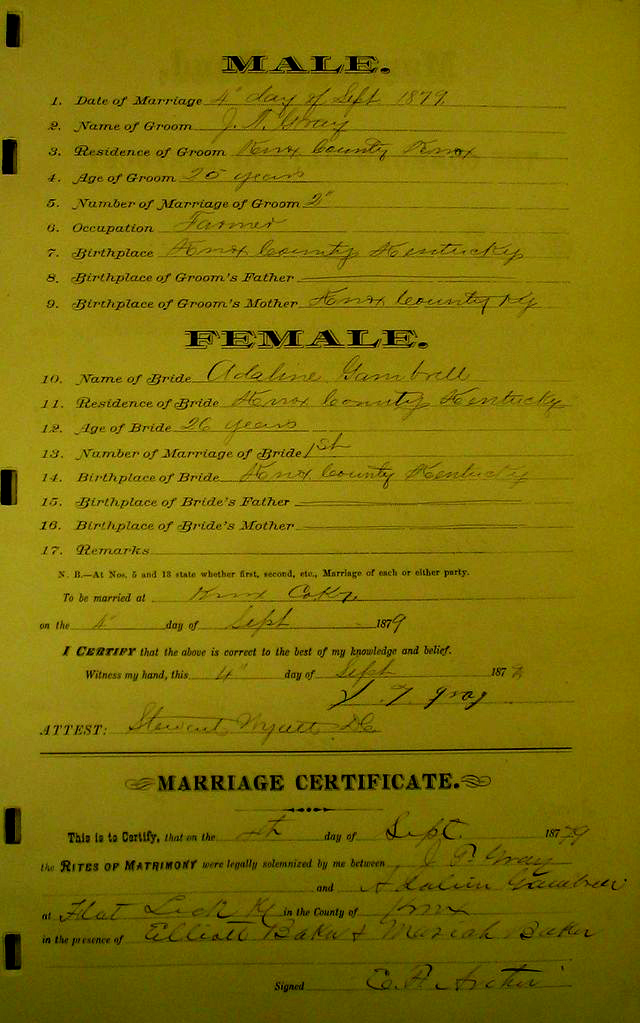 MALE.
1. Date of Marriage 4" day of Sept 1879
2. Name of Groom J. Gray
3. Residence of Groom Knox County Knox
4. Age of Groom years
5. Number of Marriage of Groom 2"
6. Occupation Farmer
7. Birthplace Knox County Kentucky
8. Birthplace of Groom's Father
9. Birthplace of Groom's Mother Knox County Ky
FEMALE.
10. Name of Bride Adaline Gambrell
11. Residence of Bride Knox County Kentucky
12. Age of Bride 26 years
13. Number of Marriage of Bride 1st
14. Birthplace of Bride Knox County Kentucky
15. Birthplace of Bride's Father
16. Birthplace of Bride's Mother
17. Remarks
N. B.—At Nos. 5 and 13 state whether first, second, etc., Marriage of each or either party.
To be married at Knox Co Ky
on the 4" day of Sept 1879
I CERTIFY that the above is correct to the best of my knowledge and belief.
Witness my hand, this 4" day of Sept 1879
gray
ATTEST: Stewart Wyatt DC
MARRIAGE CERTIFICATE.
This is to Certify, that on the 4th day of Sept. 1879
the RITES OF MATRIMONY were legally solemnized by me between J Gray
and Adalin Gambrell
at Flat Lick Ky in the County of Knox
in the presence of Elliott Baker & Mariah Baker
Signed E. Archer